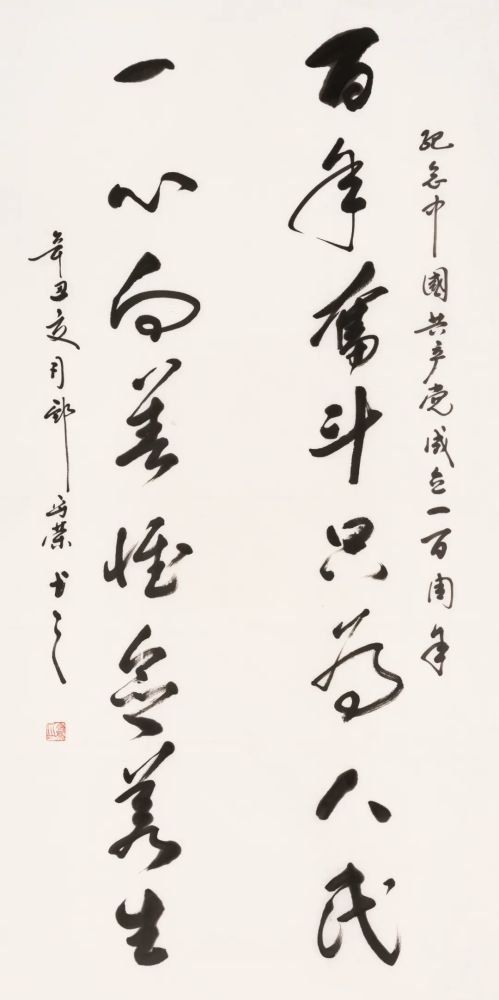 纪念中國共产党成立一百周年
百年奮斗只为人民
一心向善惟念蒼生
辛丑夏月 榮书之